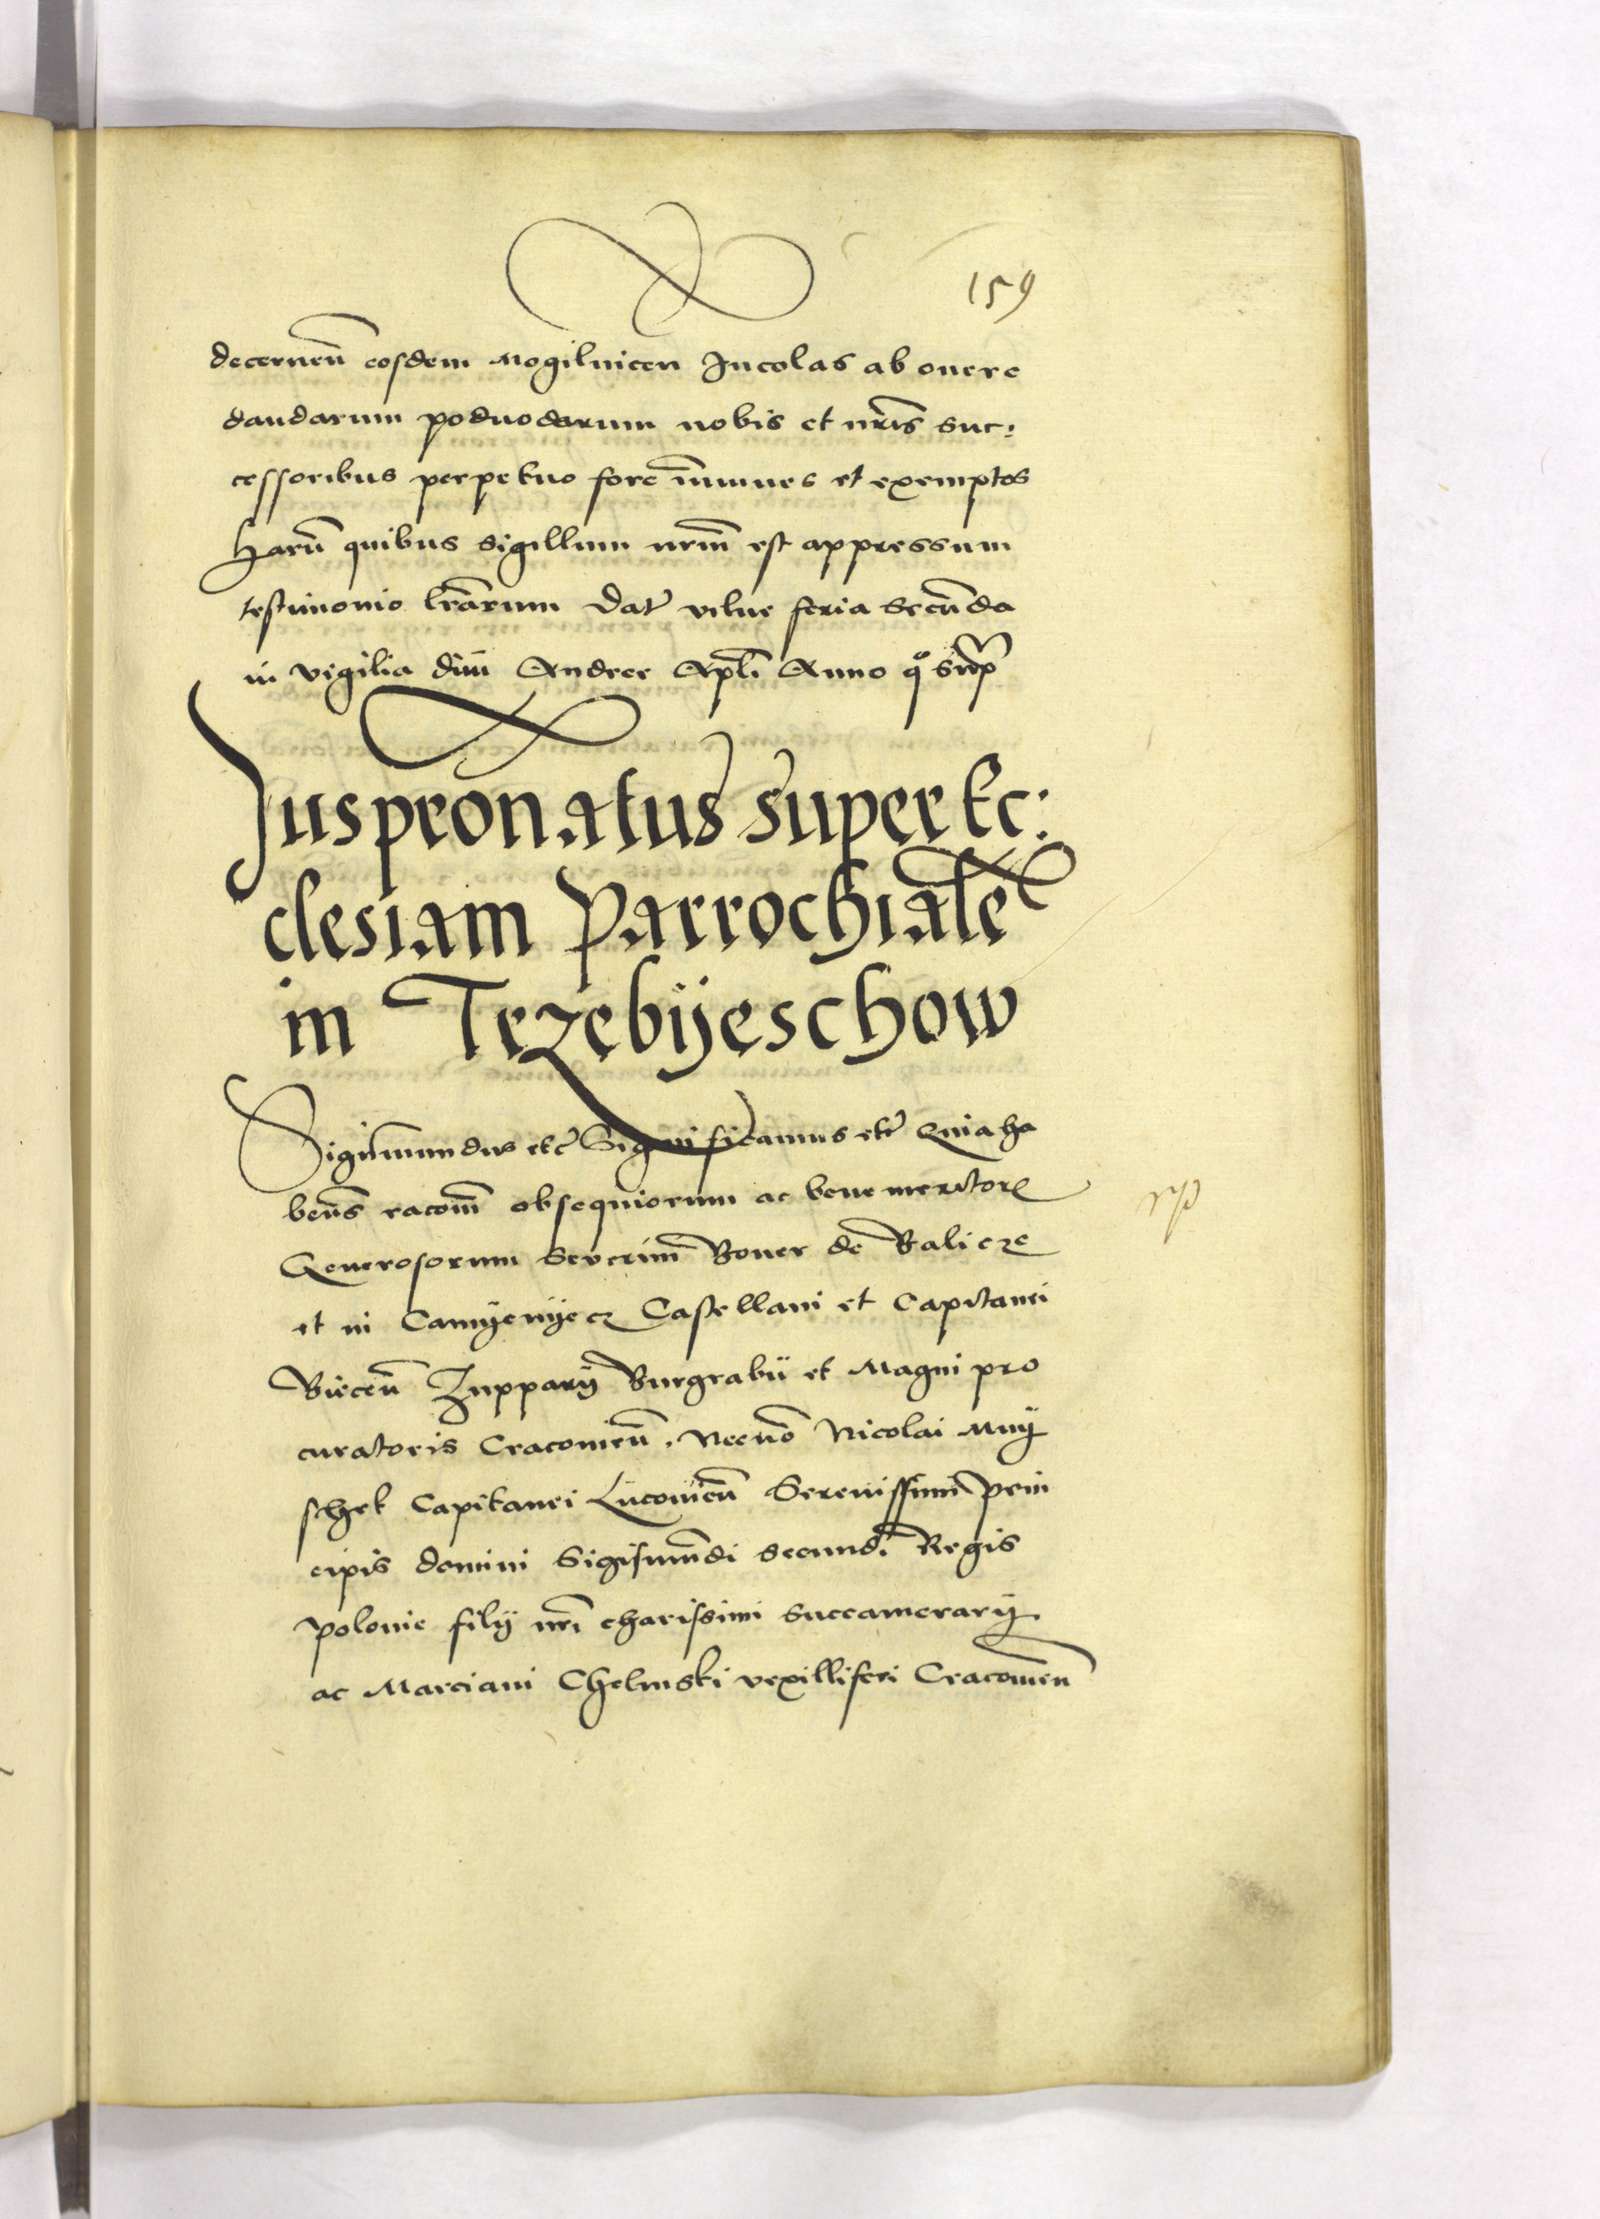 159
decerneñ eosdem Mogilnicen Incolas ab onere
dandarum podvodarum nobis et nr̃is suc:
cessoribus perpetuo fore im̃unes et exemptos
Harũ quibus sigillum nrm̃ est appressum
testimonio lrãrum Dat̃ vilne feria Secũda
in vigilia divi Andree Apl̃i Anno qº sup̃
Juspronatus super Ec:
clesiam Parrochialẽ
in Trzebÿeschow
Sigismundus etc̃ Significamus etc̃ Quia ha
beñs racom̃ obsequiorum ac bene meritor̃
Generosorum Severini Boner de Balicze
et in Camÿenÿecz Castellani et Capitanei
Biecen̄ Zupparÿ Burgrabii et Magni pro
curatoris Cracovien̄, Necnõ Nicolai Mnÿ
schek Capitanei Lucovien̄ Serenissimi prin
cipis domini Sigismũdi secundi Regis
polonie filÿ nrĩ charissimi Succamerarÿ
ac Marciani Chelmski vexilliferi Cracovien̄